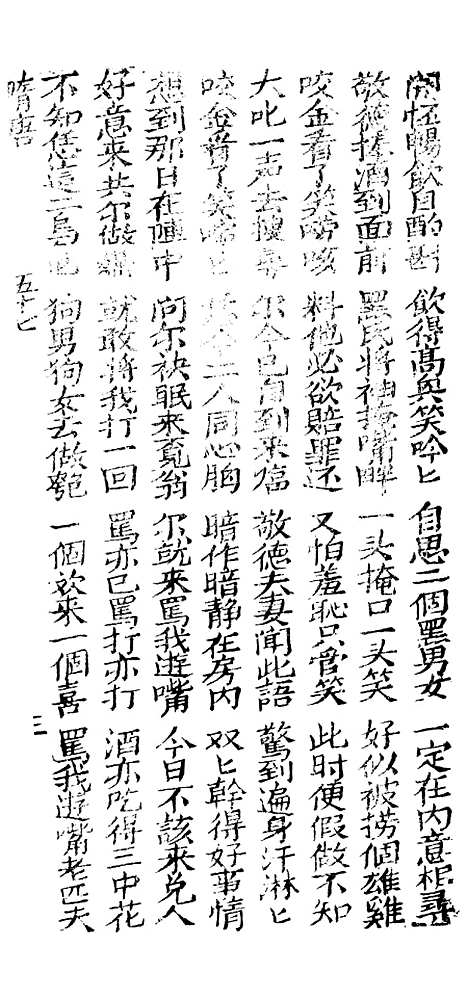 開怀暢飲自酌斟 飲得髙兴笑吟匕 自思二個黑男女 一定在内意相尋
敬德捧酒到面前 黑氏将袖掩嘴畔 一头掩口一头笑 好似被捞個雄雞
咬金看了笑嗙咳 料他必欲賠罪还 又怕羞恥只管笑 此时便假做不知
大叱一声去搜尋 尔今已自到来临 敬德夫妻闻此語 驚到遍身汗淋匕
咬金看了笑嘻匕 二人同心胸 暗作暗静在房内 双匕幹得好事情
想到那日在陣中 问尔袂眠来覓翁 尔就来罵我遊嘴 今日不該来兑人
好意来共尔做 就敢将我打一回 罵亦已罵打亦打 酒亦吃得三中花
不知恁這二烏 狗男狗女去做 一個欢来一個喜 罵我遊嘴老匹夫
隋唐 五十七 三